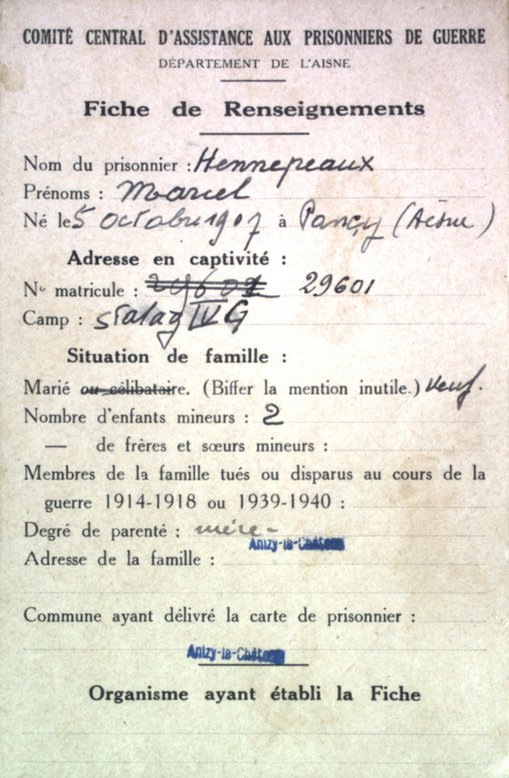 COMITÉ CENTRAL D'ASSISTANCE AUX PRISONNIERS DE GUERRE
DÉPARTEMENT DE L'AISNE
Fiche de Renseignements
Nom du prisonnier : Hennepeaux
Prénoms : Marcel
Né le 5 octobre 1907 à Pancy (Aisne)
Adresse en captivité :
No matricule : 29601
Camp : stalag IV G
Situation de famille :
Marié ou célibataire. (Biffer la mention inutile.) Veuf.
Nombre d'enfants mineurs : 2
— de frères et sœurs mineurs :
Membres de la famille tués ou disparus au cours de la
guerre 1914-1918 ou 1939-1940 :
Degré de parenté : mère -
Anizy-le-Château
Adresse de la famille :
Commune ayant délivré la carte de prisonnier :
Anizy-le-Château
Organisme ayant établi la Fiche